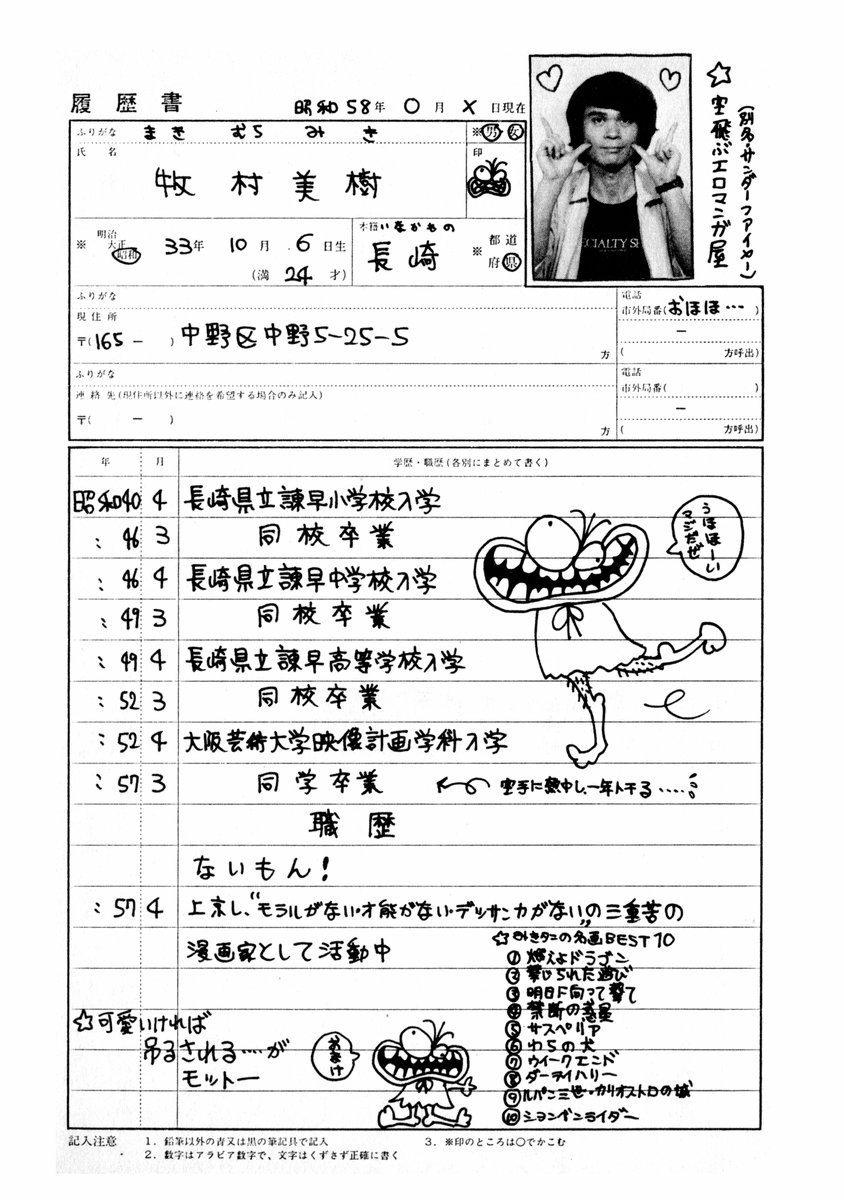 履歴書
昭和58年 〇月 X日現在
ふりがな まきむらみき
※男・女
氏名
牧村美樹
印
※ 明治 大正 昭和
33年 10月 6日生
(満 24 才)
本籍 いなかもの
長崎
※ 都道府県
☆空飛ぶエロマンガ屋
(別名・サンダーファイヤー)
SPECIALTY SH
ふりがな
現住所
〒(165 − ) 中野区中野5-25-5
方
電話
市外局番(おほほ…)
−
( 方呼出)
ふりがな
連絡先(現住所以外に連絡を希望する場合のみ記入)
〒( − )
方
電話
市外局番( )
−
( 方呼出)
年 月 学歴・職歴(各別にまとめて書く)
昭和40 4 長崎県立諫早小学校入学
: 46 3 同校卒業
: 46 4 長崎県立諫早中学校入学
: 49 3 同校卒業
: 49 4 長崎県立諫早高等学校入学
: 52 3 同校卒業
: 52 4 大阪芸術大学映像計画学科入学
: 57 3 同学卒業
空手に熱中し、一年トチる…..
うほほーい
マジだぜ
職歴
ないもん!
: 57 4 上京し、“モラルがない・才能がない・デッサン力がない”の三重苦の
漫画家として活動中
☆みきタニの名画BEST10
①燃えよドラゴン
②禁じられた遊び
③明日に向って撃て
④禁断の惑星
⑤サスペリア
⑥わらの犬
⑦ウイークエンド
⑧ダーティハリー
⑨ルパン三世・カリオストロの城
⑩シャンドライダー
☆可愛いければ
吊るされる….が
モットー
おまけ
記入注意 1. 鉛筆以外の青又は黒の筆記具で記入
2. 数字はアラビア数字で、文字はくずさず正確に書く
3. ※印のところは○でかこむ